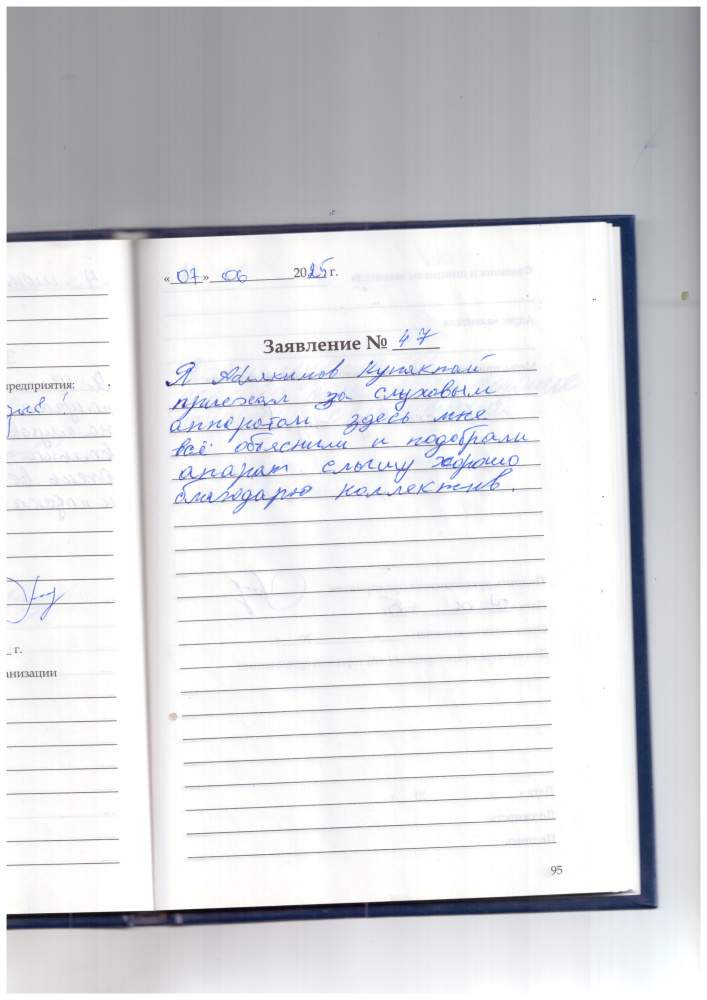 «07» 06 2025 г.
Заявление № 47
Я Абилкимов
приехал за слуховым
аппаратом здесь мне
всё объяснили и подобрали
апарат слышу хорошо
благодарю коллектив.
редприятия:
г.
анизации
95